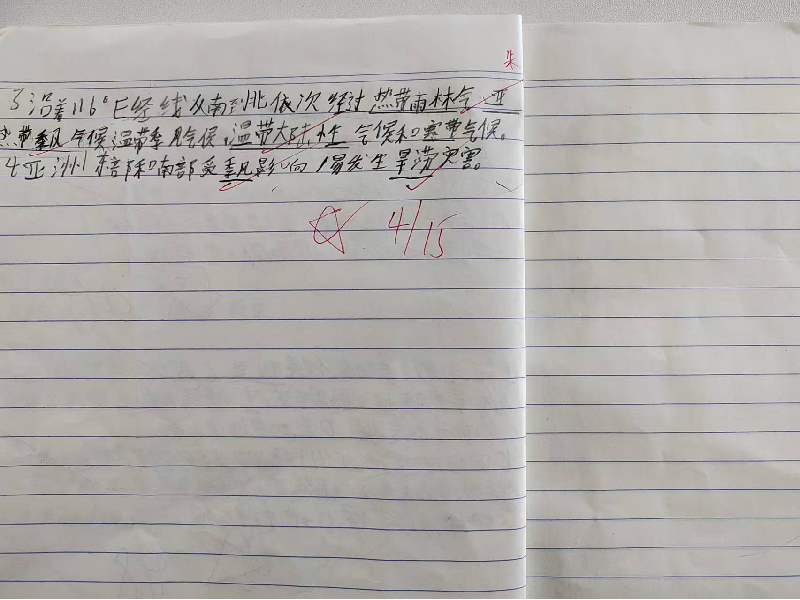 朱
3 沿着116°E经线从南到北依次经过热带雨林气 亚
热带季风气候 温带季风气候,温带大陆性 气候和寒带气候。
4 亚洲东部和南部受季风影响 易发生旱涝灾害。
4/15